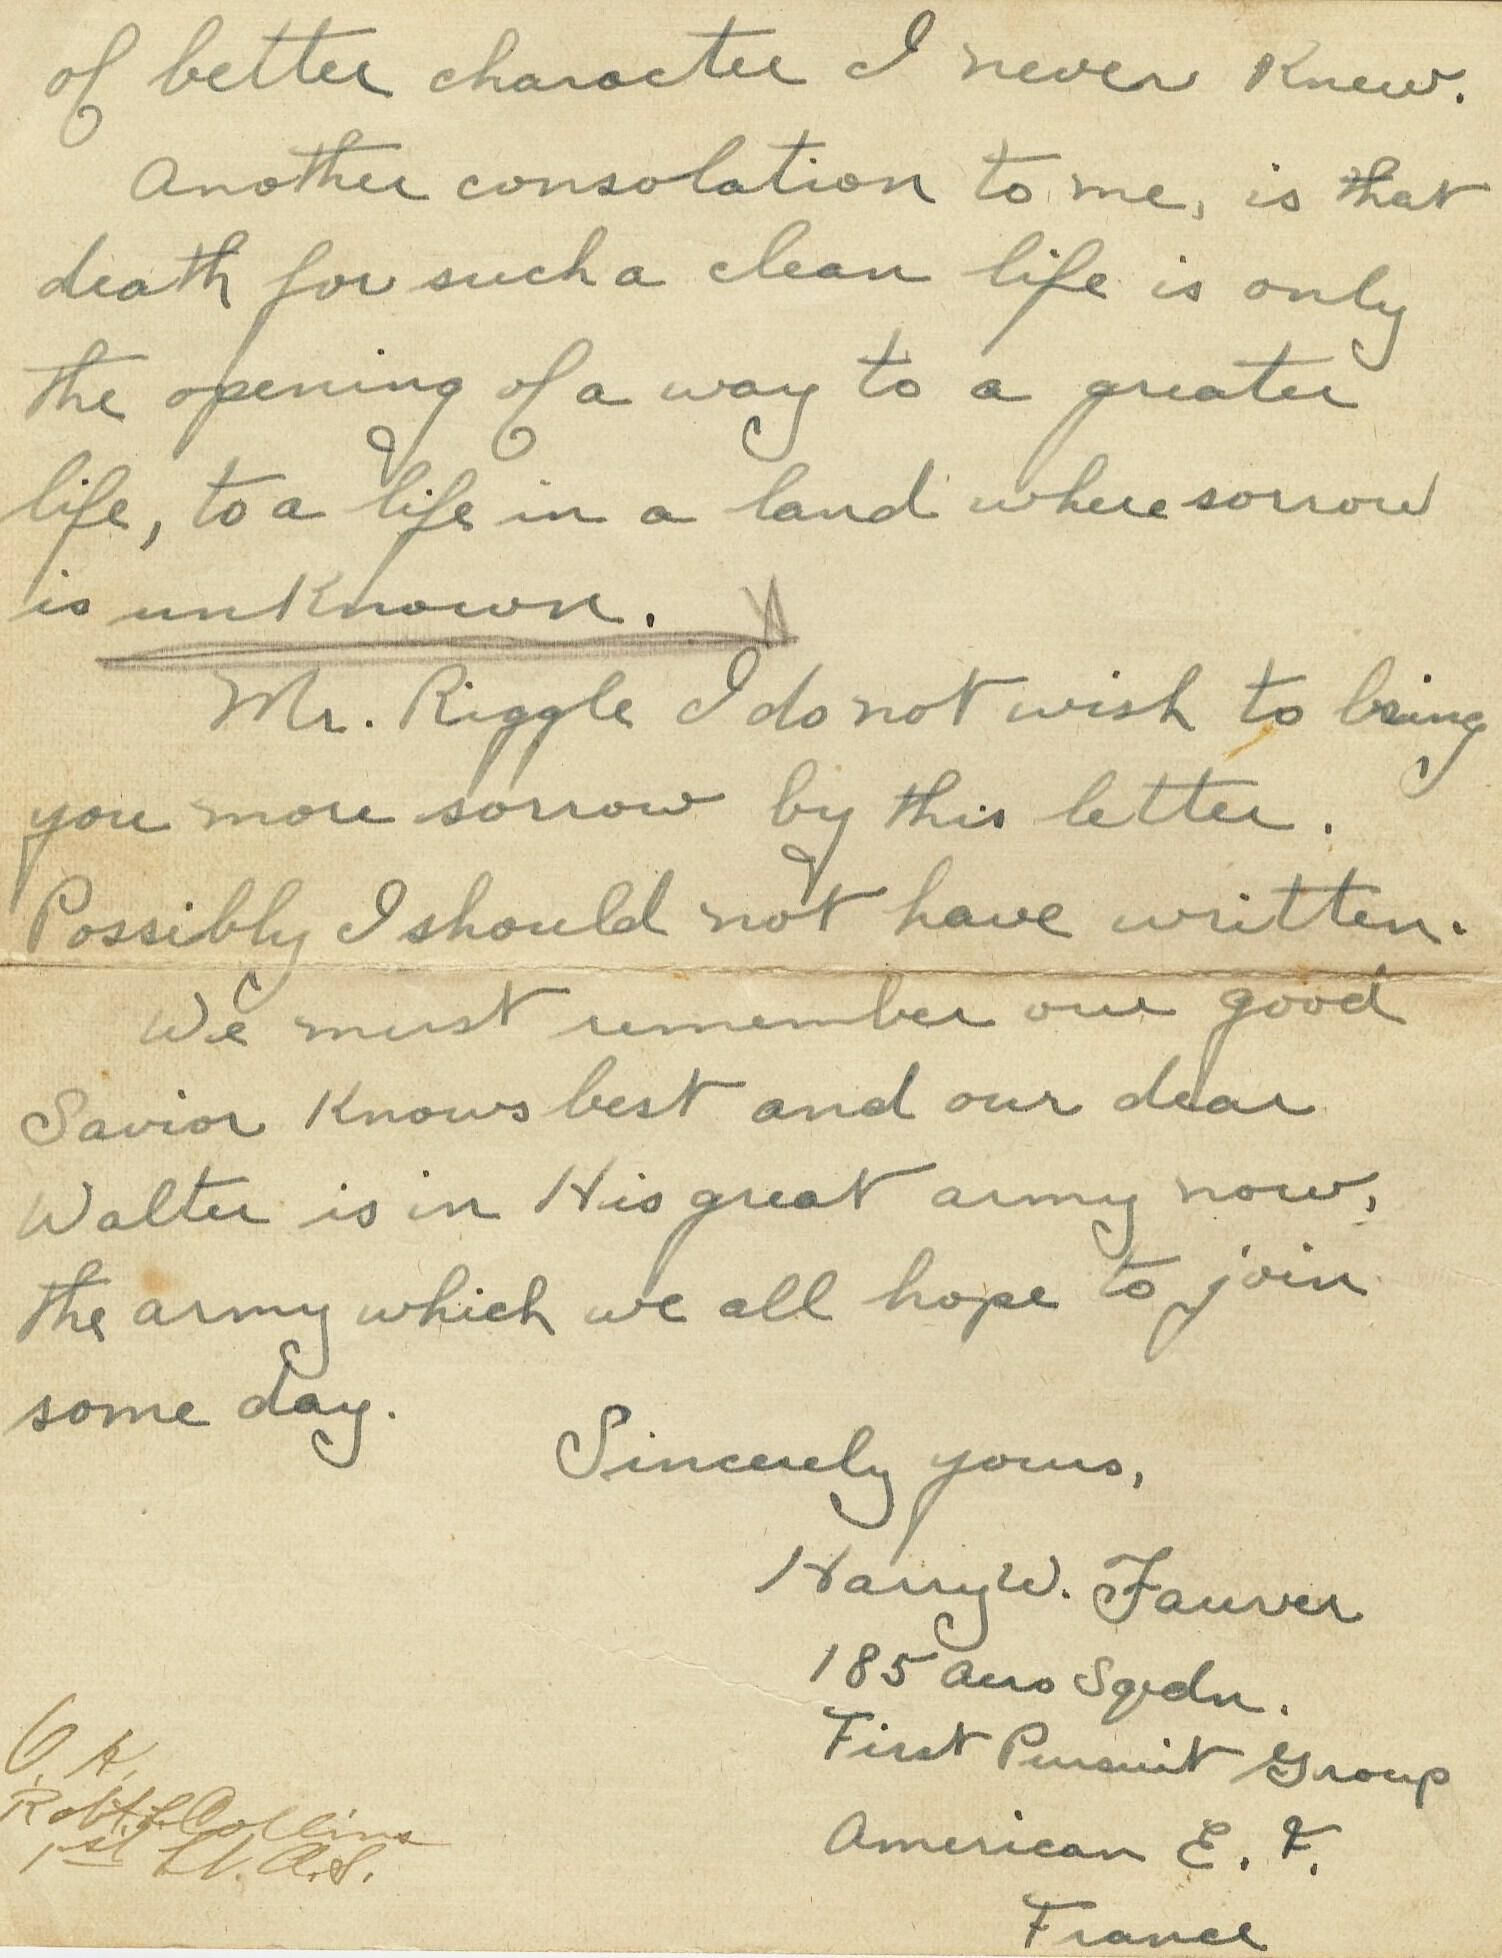 of better character I never Knew.
Another consolation to me, is that
death for such a clean life is only
the opening of a way to a greater
life, to a life in a land where sorrow
is unKnown.
Mr. Riggle I do not wish to bring
you more sorrow by this letter.
Possibly I should not have written.
We must remember our good
Savior Knows best and our dear
Walter is in His great army now,
the army which we all hope to join
some day.
Sincerely yours,
Harry W. Fauver
185 Aero Sqdn.
First Pursuit Group
American E. F.
France
O.K.
Robt. L. Collins
1st Lt. A.S.